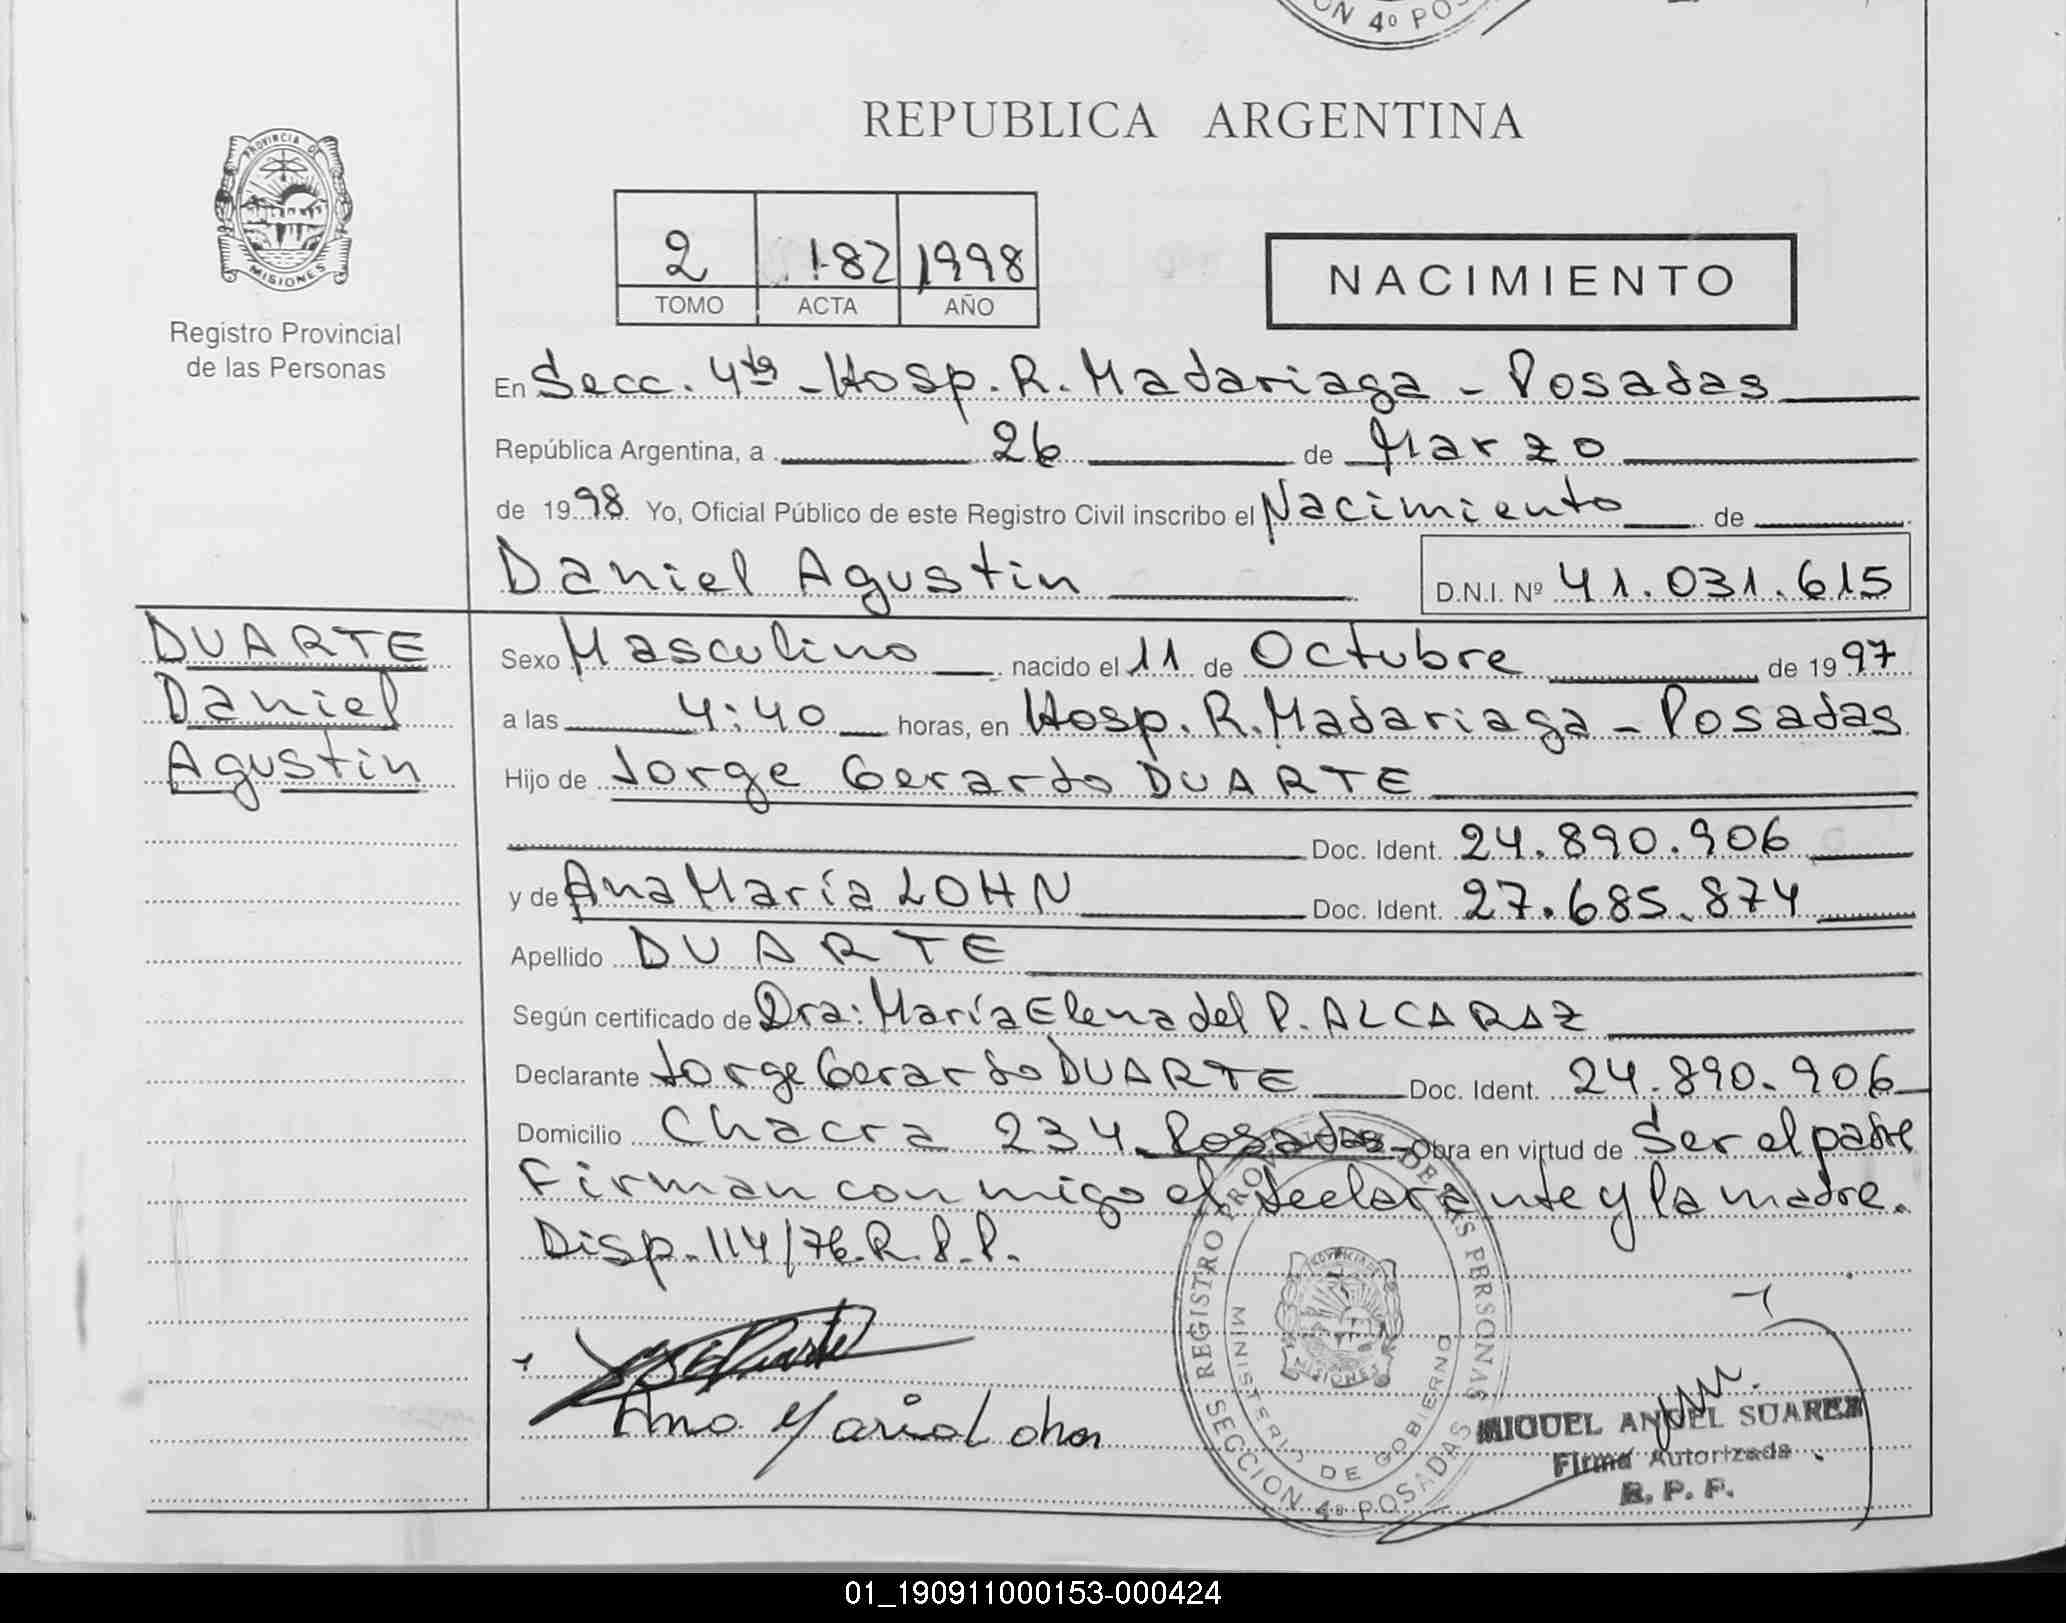 CION 4º POS
REPUBLICA ARGENTINA
PROVINCIA DE
MISIONES
Registro Provincial
de las Personas
2 182 1998
TOMO ACTA AÑO
NACIMIENTO
En Secc. 4ta - Hosp. R. Madariaga - Posadas
República Argentina, a 26 de Marzo
de 1998 Yo, Oficial Público de este Registro Civil inscribo el Nacimiento de
Daniel Agustin D.N.I. Nº 41.031.615
DUARTE
Daniel
Agustin
Sexo Masculino nacido el 11 de Octubre de 1997
a las 4:40 horas, en Hosp. R. Madariaga - Posadas
Hijo de Jorge Gerardo DUARTE
Doc. Ident. 24.890.906
y de Ana María LOHN Doc. Ident. 27.685.874
Apellido DUARTE
Según certificado de Dra: María Elena del P. ALCARAZ
Declarante Jorge Gerardo DUARTE Doc. Ident. 24.890.906
Domicilio Chacra 234 Posadas - Obra en virtud de Ser el padre
Firman conmigo el declarante y la madre.
Disp. 114/76.R.P.P.
REGISTRO PROVINCIAL DE LAS PERSONAS
MINISTERIO DE GOBIERNO
SECCION 4º POSADAS
Duarte
Ana Maria Lohn
MIGUEL ANGEL SUAREZ
Firma Autorizada
R. P. P.
01_190911000153-000424